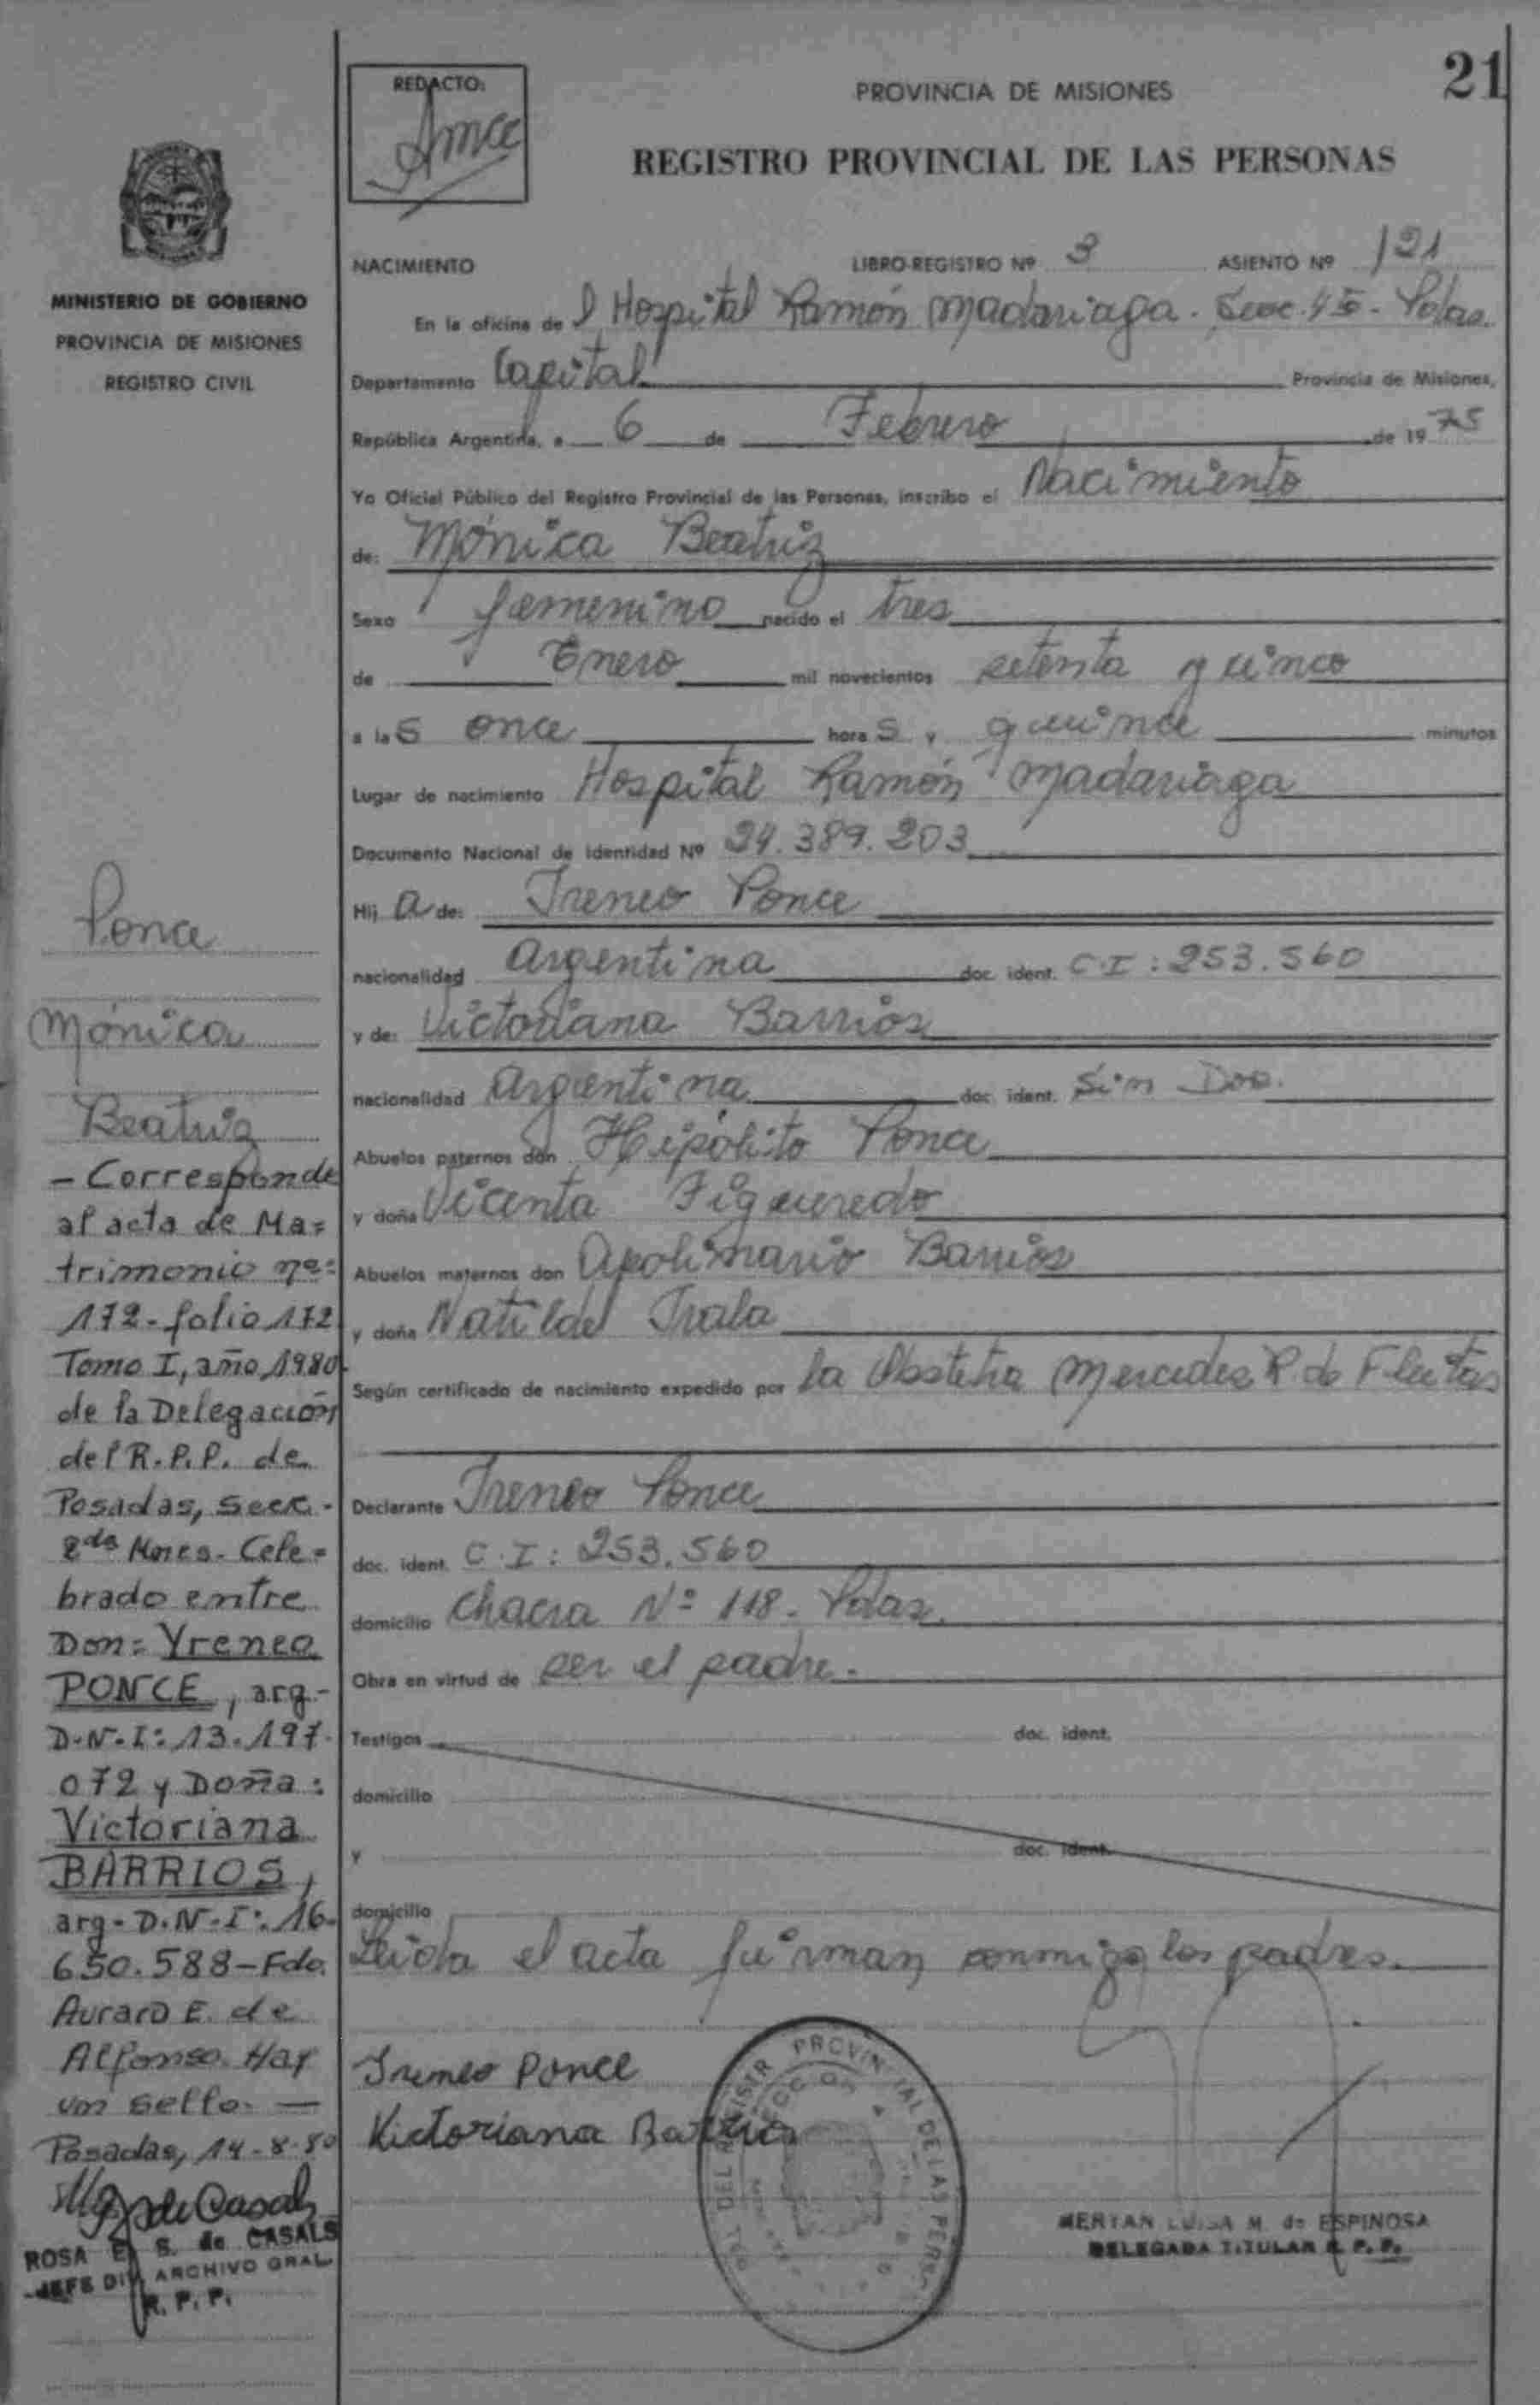 21
REDACTO:
PROVINCIA DE MISIONES
REGISTRO PROVINCIAL DE LAS PERSONAS
MINISTERIO DE GOBIERNO
PROVINCIA DE MISIONES
REGISTRO CIVIL
NACIMIENTO LIBRO-REGISTRO Nº 3 ASIENTO Nº 121
En la oficina de l Hospital Ramón Madariaga. Secc. 4ta - Pdas.
Departamento Capital Provincia de Misiones,
República Argentina, a 6 de Febrero de 1975
Yo Oficial Público del Registro Provincial de las Personas, inscribo el Nacimiento
de: Mónica Beatriz
Sexo femenino nacido el tres
de Enero mil novecientos setenta y cinco
a las once horas y quince minutos
Lugar de nacimiento Hospital Ramón Madariaga
Documento Nacional de Identidad Nº 24.389.203
Hija de: Ireneo Ponce
nacionalidad Argentina doc. ident. C.I: 253.560
y de: Victoriana Barrios
nacionalidad Argentina doc. ident. Sin Doc.
Abuelos paternos don Hipólito Ponce
y doña Vicenta Figueredo
Abuelos maternos don Apolinario Barrios
y doña Natilde Irala
Según certificado de nacimiento expedido por la Obstetra Mercedes R. de Fleitas
Declarante Ireneo Ponce
doc. ident. C.I: 253.560
domicilio Chacra Nº 118. Pdas.
Obra en virtud de ser el padre.
Testigos doc. ident.
domicilio
y doc. ident.
domicilio
Leída el acta firman conmigo los padres.
Ireneo Ponce
Victoriana Barrios
MERIAN LUISA M. de ESPINOSA
DELEGADA TITULAR R. P. P.
Ponce
Mónica
Beatriz
- Corresponde
al acta de Ma=
trimonio nº:
172 - folio 172
Tomo I, año 1980
de la Delegación
del R.P.P. de
Posadas, Secc.-
2da Nores. Cele=
brado entre
Don: Yreneo
PONCE, arg.-
D.N.I: 13.197.
072 y Doña:
Victoriana
BARRIOS,
arg- D.N.I: 16.
650.588 - Fdo.
E. de
Alfonso. Hay
un sello. —
Posadas, 14-8-80
ROSA E. S. de CASALS
JEFE DIV. ARCHIVO GRAL.
R. P. P.